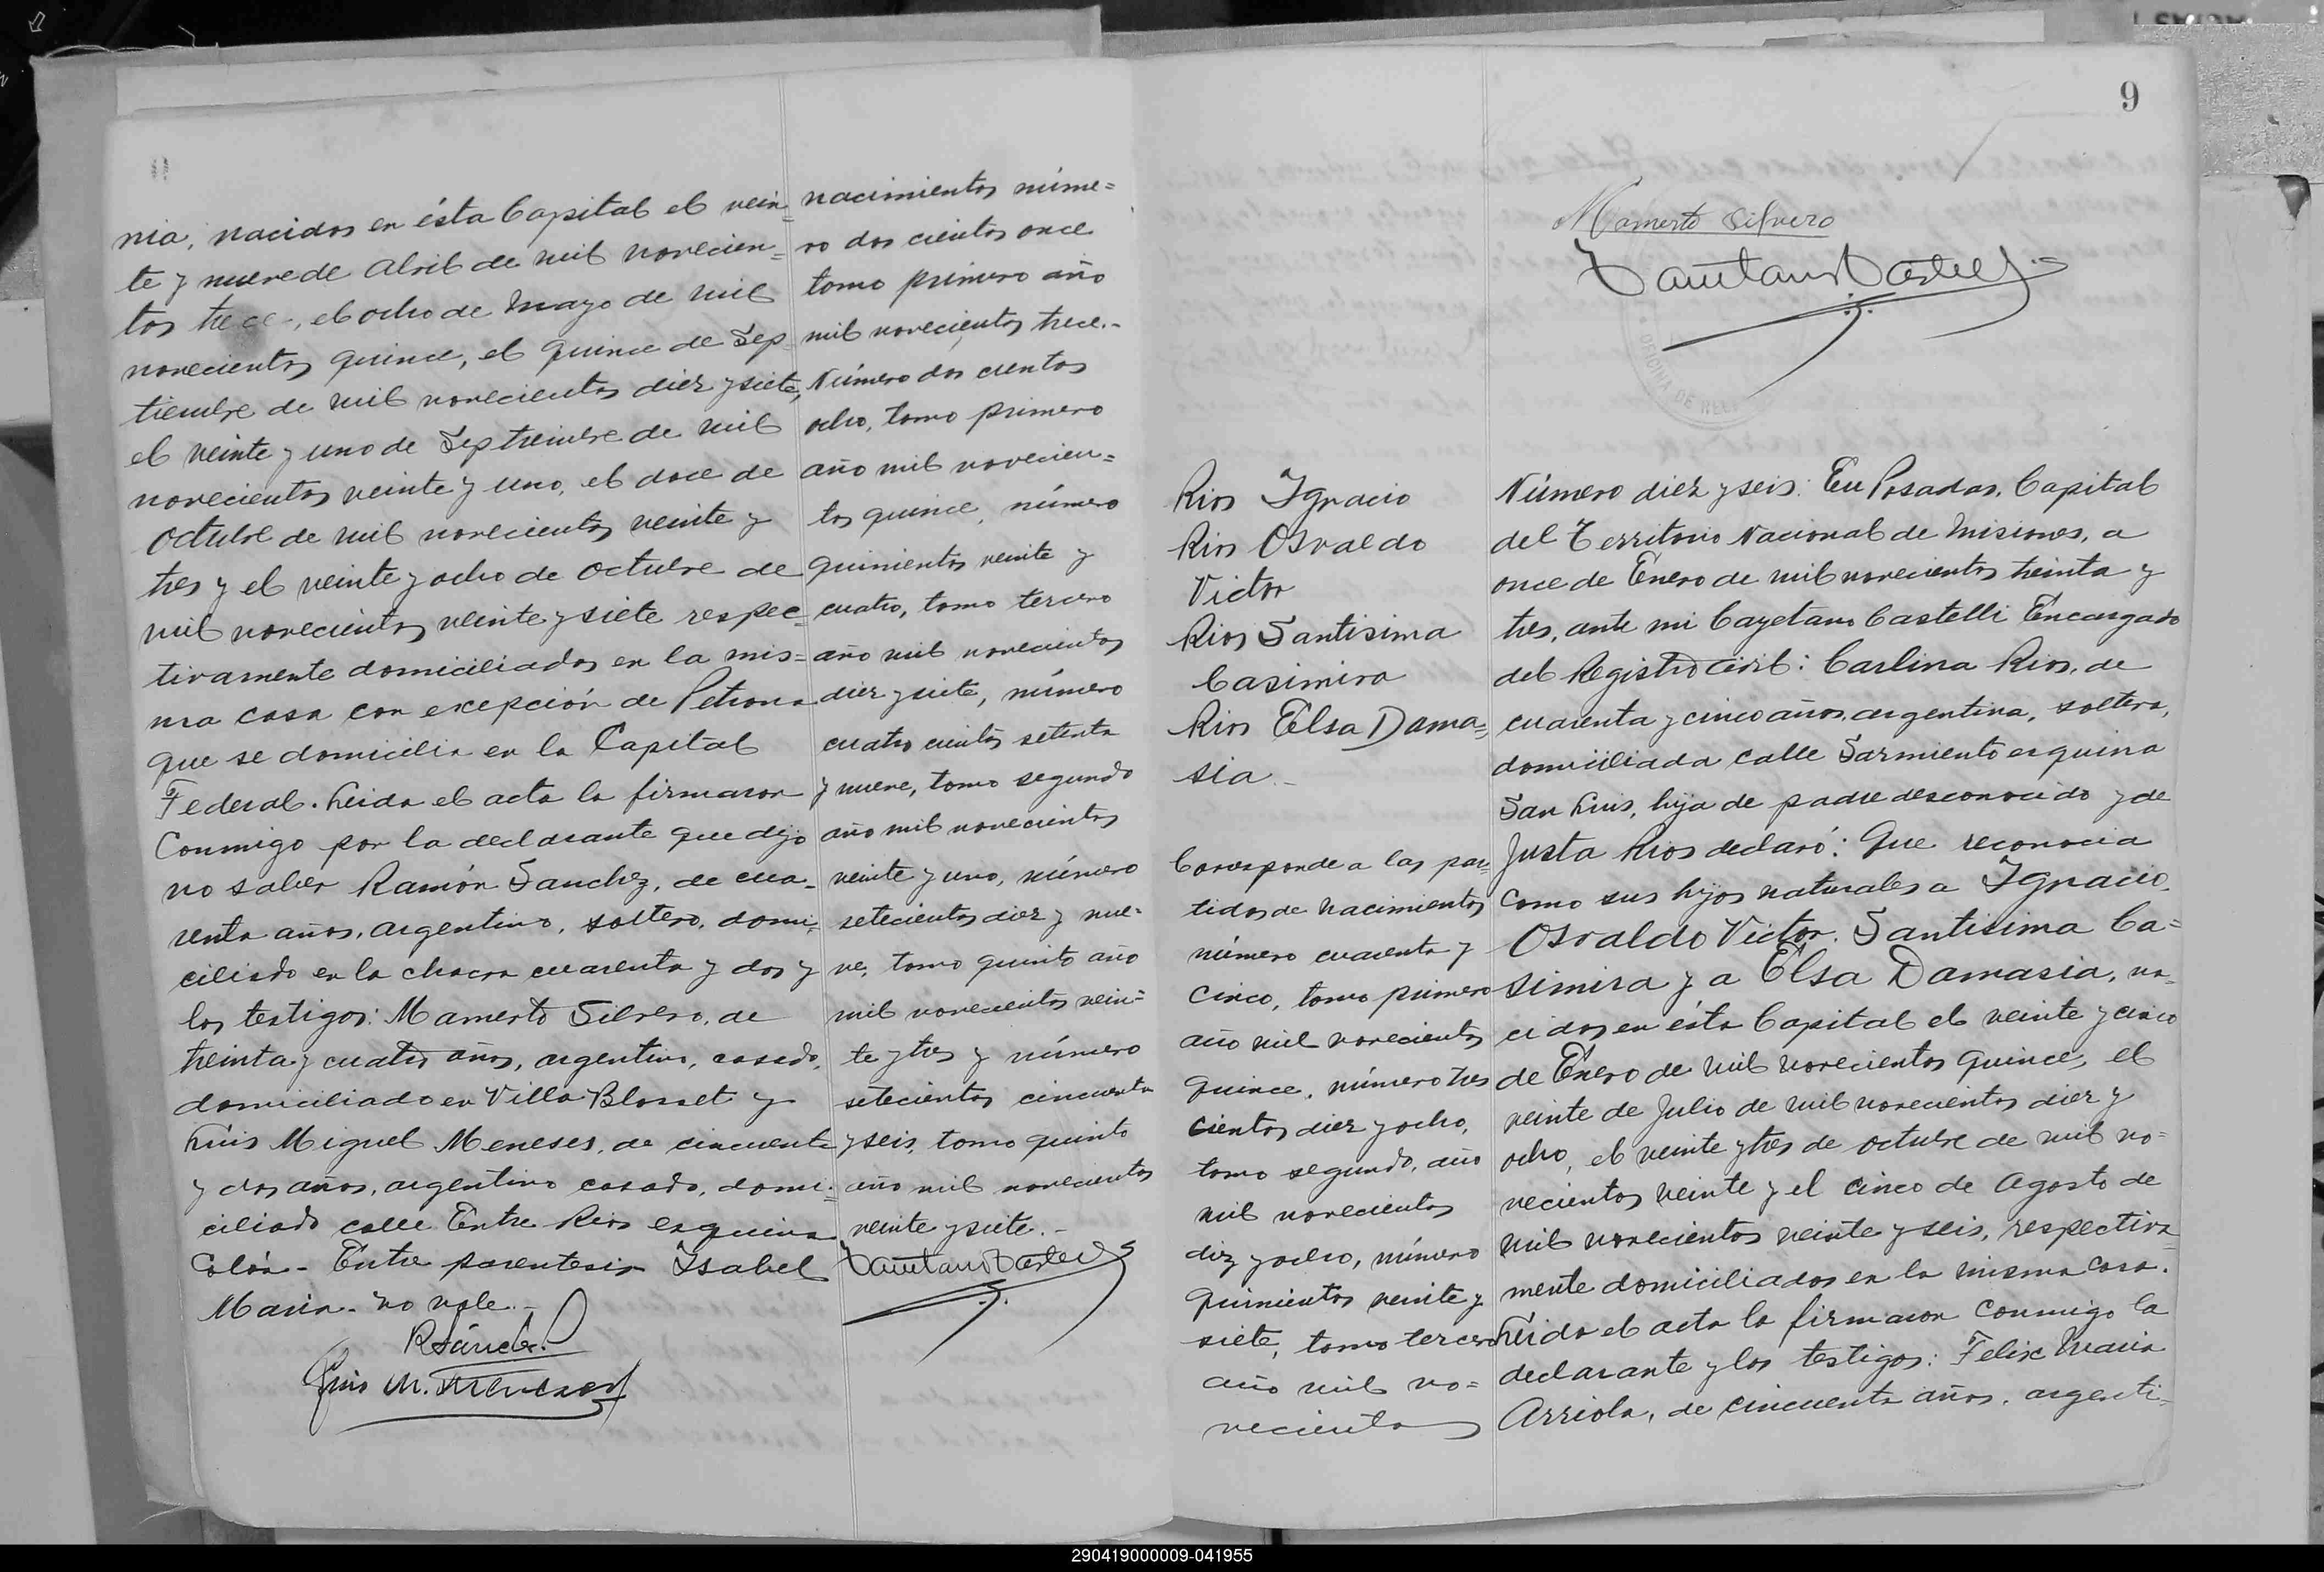 nia, nacidos en ésta Capital el vein=
te y nueve de Abril de mil novecien=
tos trece, el ocho de Mayo de mil
novecientos quince, el quince de Sep
tiembre de mil novecientos diez y siete,
el veinte y uno de Septiembre de mil
novecientos veinte y uno, el doce de
Octubre de mil novecientos veinte y
tres y el veinte y ocho de Octubre de
mil novecientos veinte y siete respec=
tivamente domiciliados en la mis=
ma casa con excepción de Petrona
que se domicilia en la Capital
Federal. Leida el acta la firmaron
Conmigo por la declarante que dijo
no saber Ramón Sanchez, de cua-
renta años, argentino, soltero, domi=
ciliado en la chacra cuarenta y dos y
los testigos: Mamerto Silvero, de
treinta y cuatro años, argentino, casado,
domiciliado en Villa Blosset y
Luis Miguel Meneses, de cincuenta
y dos años, argentino casado, domi=
ciliado calle Entre Rios esquina
Colón - Entre parentesis Isabel
Maria - no vale.-
RSánchez
Luis M. Meneses
nacimientos núme=
ro dos cientos once
tomo primero año
mil novecientos trece.-
Número dos cientos
ocho, tomo primero
año mil novecien=
tos quince, número
quinientos veinte y
cuatro, tomo tercero
año mil novecientos
diez y siete, número
cuatro cientos setenta
y nueve, tomo segundo
año mil novecientos
veinte y uno, número
setecientos diez y nue=
ve, tomo quinto año
mil novecientos vein=
te y tres y número
setecientos cincuenta
y seis, tomo quinto
año mil novecientos
veinte y siete.-
9
Mamerto Silvero
OFICINA DE
Rios Ignacio
Rios Osvaldo
Victor
Rios Santisima
Casimira
Rios Elsa Dama=
sia -
Corresponde a las par=
tidas de nacimientos
número cuarenta y
cinco, tomo primero
año mil novecientos
quince, número tres
cientos diez y ocho,
tomo segundo, año
mil novecientos
diez y ocho, número
quinientos veinte y
siete, tomo tercero
año mil no=
vecientos
Número diez y seis: En Posadas, Capital
del Territorio Nacional de Misiones, a
once de Enero de mil novecientos treinta y
tres, ante mi Cayetano Castelli Encargado
del Registro Civil: Carlina Rios, de
cuarenta y cinco años, argentina, soltera,
domiciliada calle Sarmiento esquina
San Luis, hija de padre desconocido y de
Justa Rios declaró: Que reconocia
como sus hijos naturales a Ignacio,
Osvaldo Victor, Santisima Ca=
simira y a Elsa Damasia, na-
cidos en ésta Capital el veinte y cinco
de Enero de mil novecientos quince, el
veinte de Julio de mil novecientos diez y
ocho, el veinte y tres de octubre de mil no=
vecientos veinte y el cinco de Agosto de
mil novecientos veinte y seis, respectiva=
mente domiciliados en la misma casa.
Leida el acta la firmaron conmigo la
declarante y los testigos: Felix Maria
Arriola, de cincuenta años, argenti=
290419000009-041955